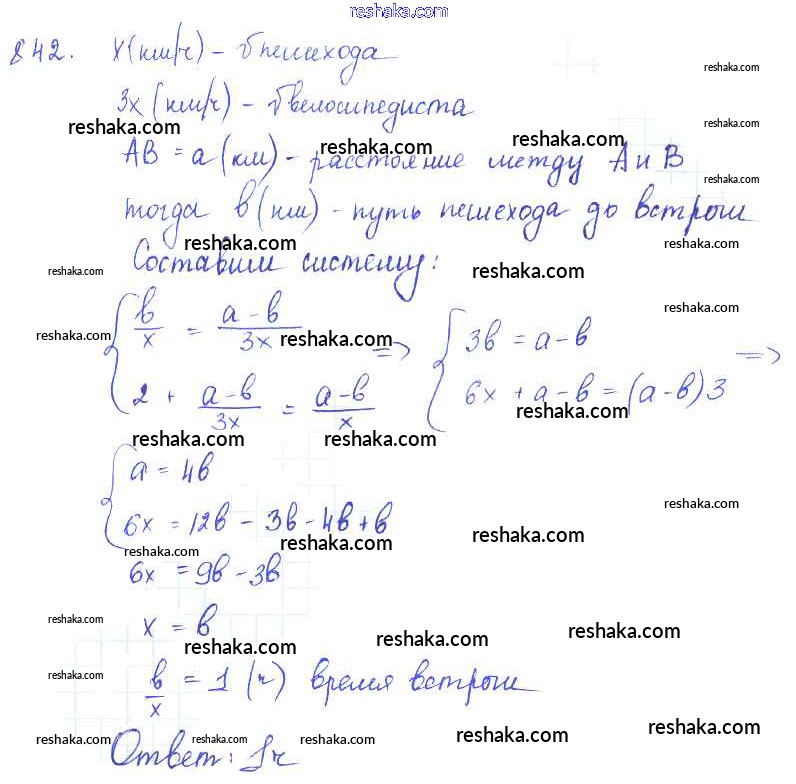 reshaka.com
842. x (км/ч) – υ пешехода
reshaka.com
3x (км/ч) – υ велосипедиста
reshaka.com reshaka.com reshaka.com
AB = a (км) – расстояние между A и B
reshaka.com
тогда в (км) – путь пешехода до встречи
reshaka.com
Составим систему:
reshaka.com reshaka.com
{ в/x = (a – в)/3x => { 3в = a – в =>
reshaka.com reshaka.com reshaka.com
2 + (a – в)/3x = (a – в)/x 6x + a – в = (a – в)3
reshaka.com reshaka.com reshaka.com
{ a = 4в
reshaka.com
6x = 12в – 3в – 4в + в
reshaka.com reshaka.com reshaka.com
6x = 9в – 3в
reshaka.com
x = в
reshaka.com reshaka.com reshaka.com
reshaka.com
в/x = 1 (ч) время встречи
reshaka.com reshaka.com reshaka.com reshaka.com reshaka.com
Ответ: 1ч